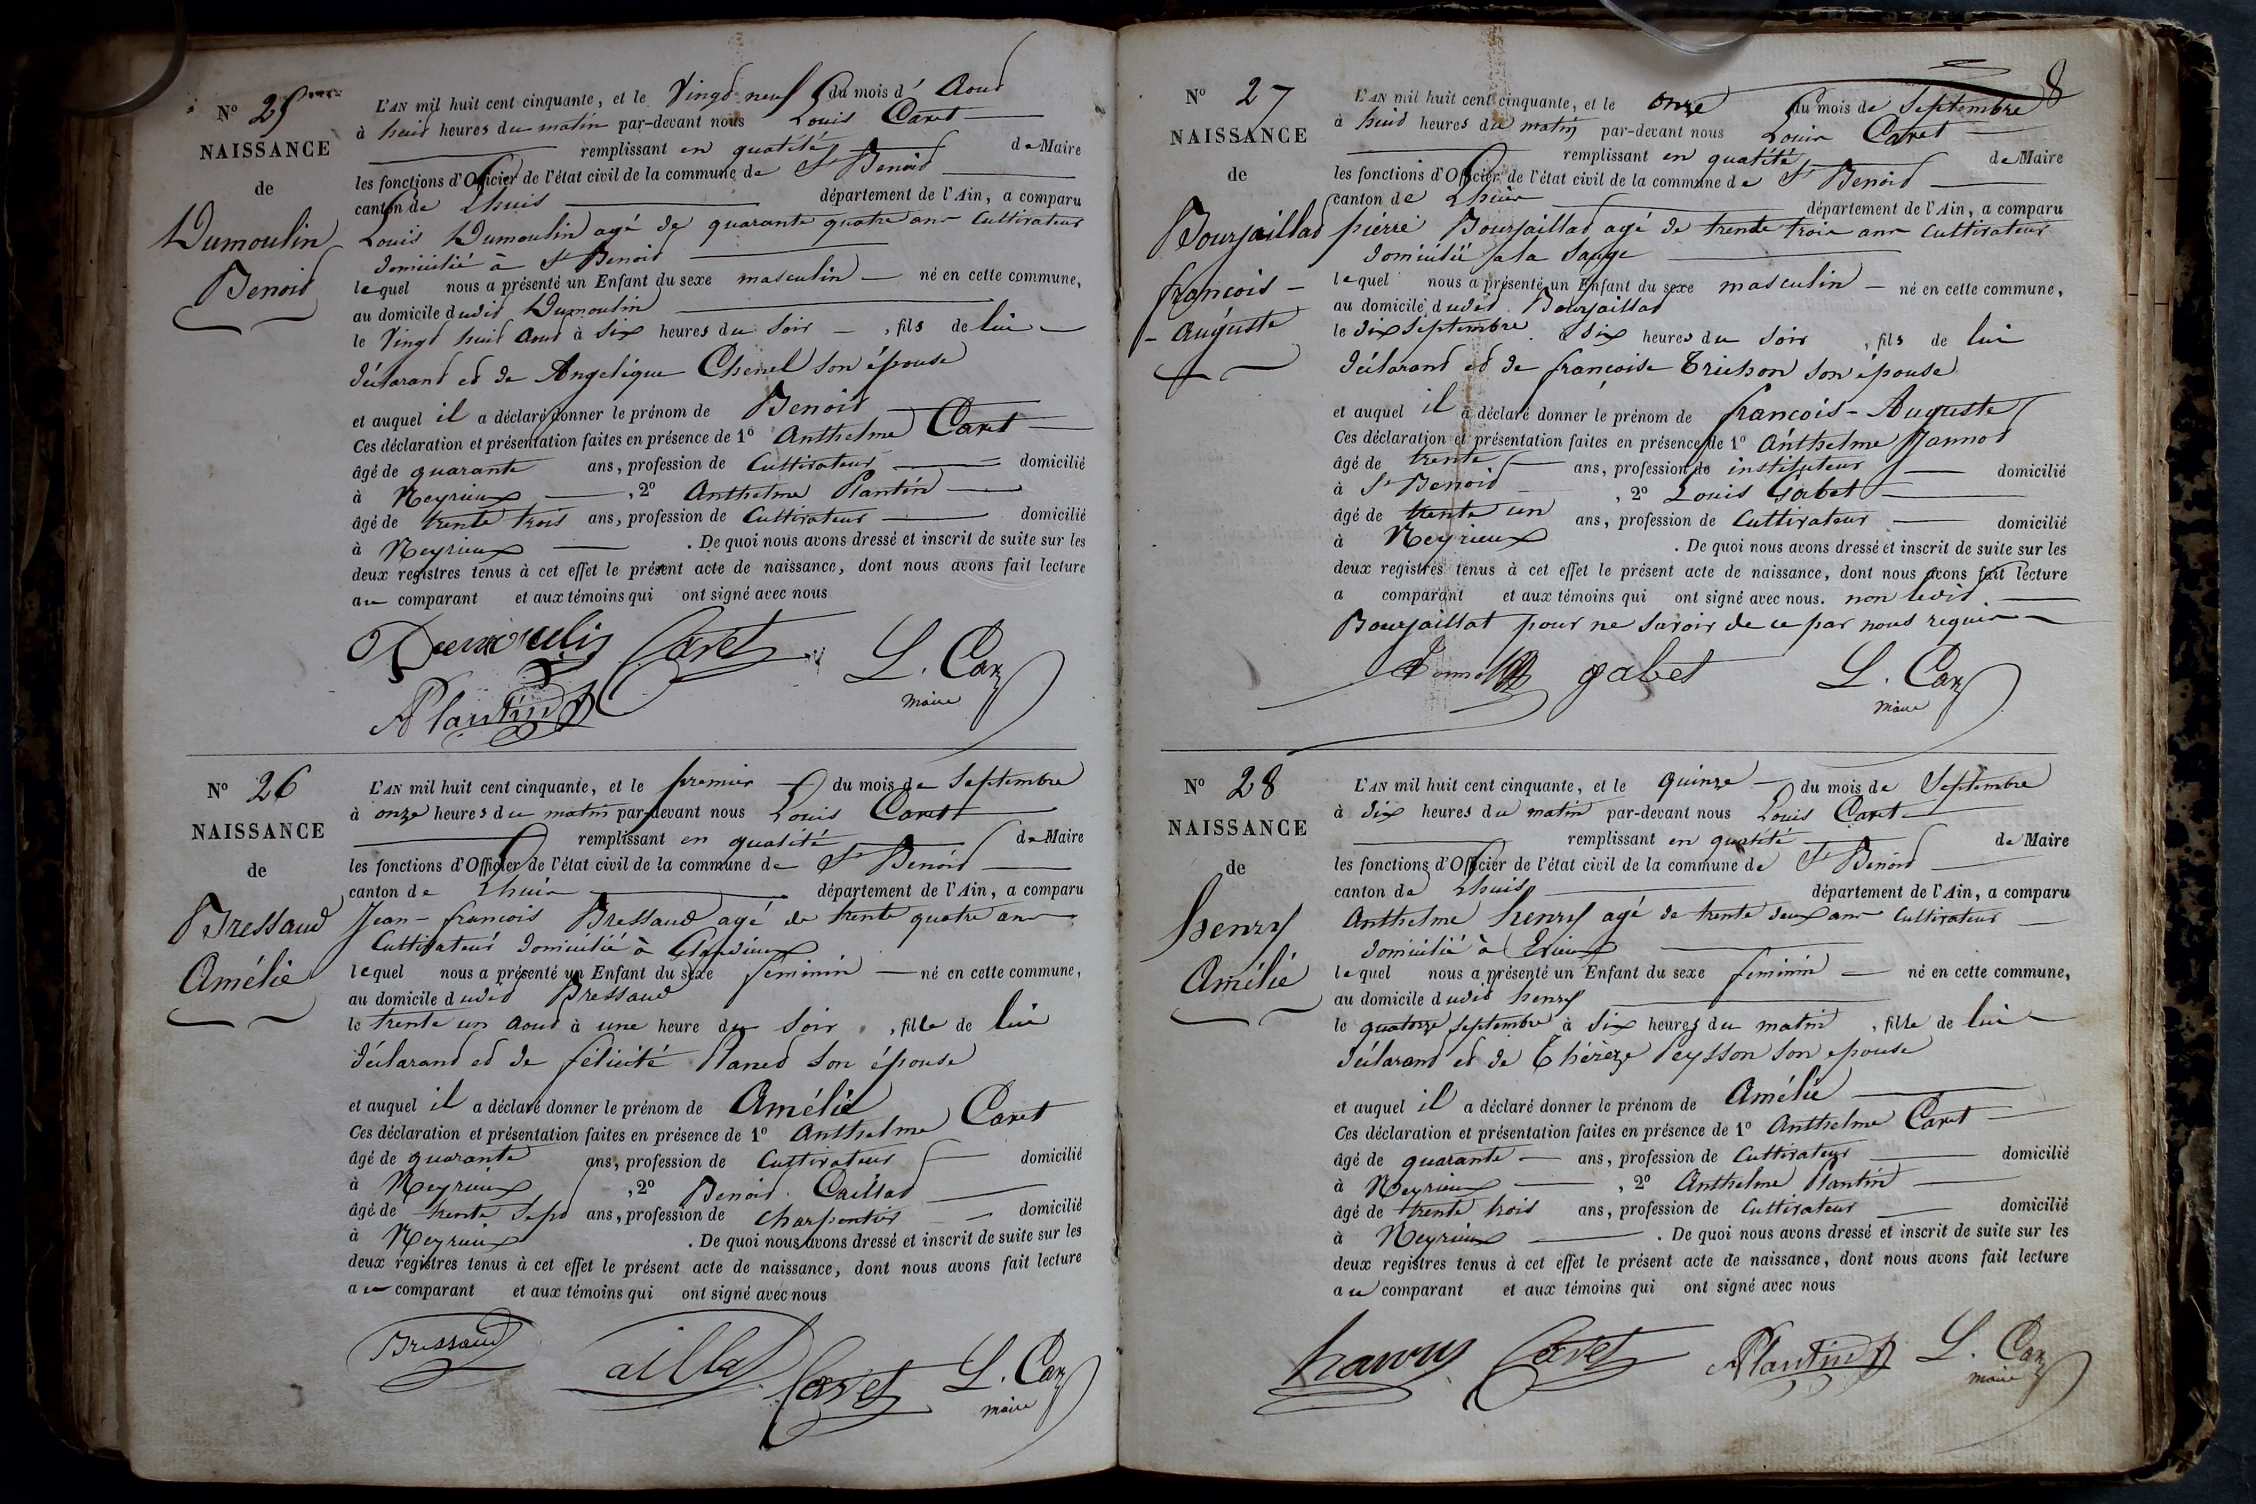 N° 25
NAISSANCE
de
Dumoulin
Benoid
L'AN mil huit cent cinquante, et le Vingd neuf du mois d' Aoud
à huid heures du matin par-devant nous Louis Caret
remplissant en qualité de Maire
les fonctions d'Officier de l'état civil de la commune de St Benoid
canton de Lhuis département de l'Ain, a comparu
Louis Dumoulin agé de quarante quatre ans Cultivateur
domicilié à St Benoid
lequel nous a présenté un Enfant du sexe masculin né en cette commune,
au domicile dudid Dumoulin
le Vingd huid Aoud à six heures du soir, fils de lui
déclarand ed de Angelique Chenel son épouse
et auquel il a déclaré donner le prénom de Benoid
Ces déclaration et présentation faites en présence de 1° Anthelme Caret
âgé de quarante ans, profession de Cultivateur domicilié
à Neyrieux, 2° Anthelme Plantin
âgé de trente trois ans, profession de Cultivateur domicilié
à Neyrieux. De quoi nous avons dressé et inscrit de suite sur les
deux registres tenus à cet effet le présent acte de naissance, dont nous avons fait lecture
au comparant et aux témoins qui ont signé avec nous
Dumoulin Caret L. Caret
maire
APlantin
N° 26
NAISSANCE
de
Bressaud
Amélie
L'AN mil huit cent cinquante, et le premier du mois de Septembre
à onze heures du matin par-devant nous Louis Caret
remplissant en qualité de Maire
les fonctions d'Officier de l'état civil de la commune de St Benoid
canton de Lhuis département de l'Ain, a comparu
Jean-francois Bressaud agé de trente quatre ans
Cultivateur domicilié à Glandieux
lequel nous a présenté un Enfant du sexe feminin né en cette commune,
au domicile dudid Bressaud
le trente un Aoud à une heure du soir, fille de lui
déclarand ed de félicité Planed son épouse
et auquel il a déclaré donner le prénom de Amélie
Ces déclaration et présentation faites en présence de 1° Anthelme Caret
âgé de quarante ans, profession de Cultivateur domicilié
à Neyrieux, 2° Benoid Caillad
âgé de trente sepd ans, profession de charpentier domicilié
à Neyrieux. De quoi nous avons dressé et inscrit de suite sur les
deux registres tenus à cet effet le présent acte de naissance, dont nous avons fait lecture
au comparant et aux témoins qui ont signé avec nous
Bressaud Caillad Caret L. Caret
maire
8
N° 27
NAISSANCE
de
Bourjaillad
francois-
-Auguste
L'AN mil huit cent cinquante, et le onze du mois de Septembre
à huid heures du matin par-devant nous Louis Caret
remplissant en qualité de Maire
les fonctions d'Officier de l'état civil de la commune de St Benoid
canton de Lhuis département de l'Ain, a comparu
pierre Bourjaillad agé de trente trois ans Cultivateur
domicilié à la Sauge
lequel nous a présenté un Enfant du sexe masculin né en cette commune,
au domicile dudid Bourjaillad
le dix Septembre à six heures du soir, fils de lui
déclarand ed de françoise Trichon son épouse
et auquel il a déclaré donner le prénom de francois-Auguste
Ces déclaration et présentation faites en présence de 1° Anthelme Jannod
âgé de trente ans, profession de instituteur domicilié
à St Benoid, 2° Louis Gabet
âgé de trente un ans, profession de Cultivateur domicilié
à Neyrieux. De quoi nous avons dressé et inscrit de suite sur les
deux registres tenus à cet effet le présent acte de naissance, dont nous avons fait lecture
a comparant et aux témoins qui ont signé avec nous. non ledid
Bourjaillat pour ne savoir de ce par nous requis
gabet L. Caret
maire
N° 28
NAISSANCE
de
henry
Amélie
L'AN mil huit cent cinquante, et le quinze du mois de Septembre
à dix heures du matin par-devant nous Louis Caret
remplissant en qualité de Maire
les fonctions d'Officier de l'état civil de la commune de St Benoid
canton de Lhuis département de l'Ain, a comparu
Anthelme henry agé de trente deux ans Cultivateur
domicilié à Evieux
lequel nous a présenté un Enfant du sexe feminin né en cette commune,
au domicile dudid henry
le quatorze septembre à six heures du matin, fille de lui
déclarand ed de Thérèze Peysson son epouse
et auquel il a déclaré donner le prénom de Amélie
Ces déclaration et présentation faites en présence de 1° Anthelme Caret
âgé de quarante ans, profession de Cultivateur domicilié
à Neyrieux, 2° Anthelme Plantin
âgé de trente trois ans, profession de Cultivateur domicilié
à Neyrieux. De quoi nous avons dressé et inscrit de suite sur les
deux registres tenus à cet effet le présent acte de naissance, dont nous avons fait lecture
au comparant et aux témoins qui ont signé avec nous
hanry Caret APlantin L. Caret
maire